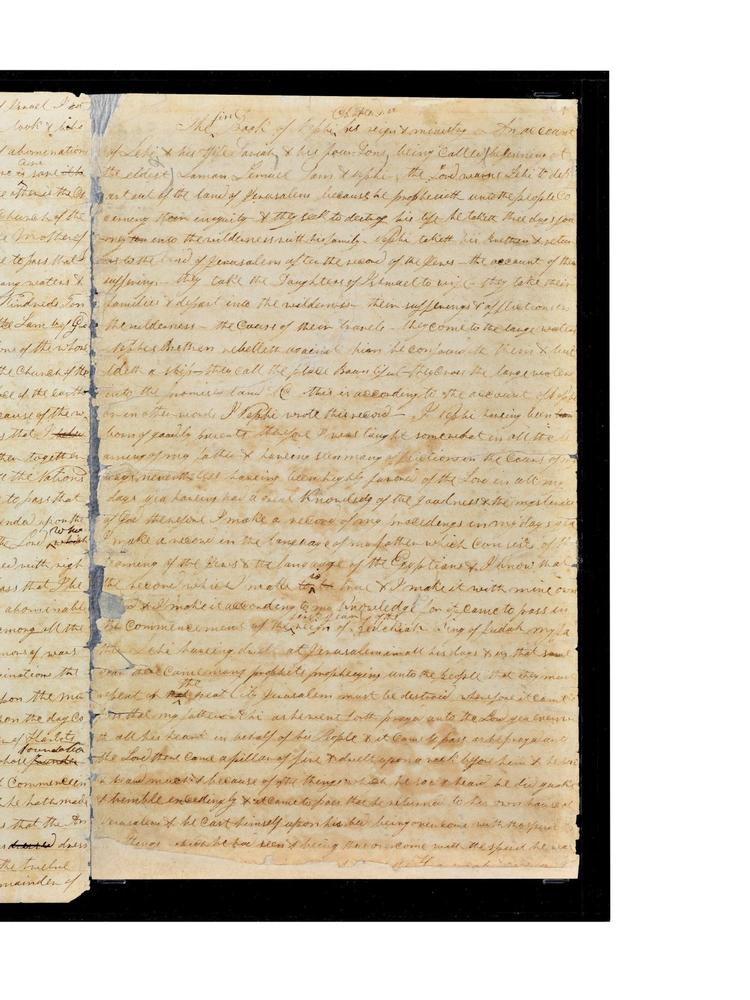 look &
abominations
Church of the
Mother of
to pass that
any waters &
Kindreds Ton
the Lamb of G
one of the whore
the Church of the
ce of the earth
ecause of the w
s that I
ther together
t the Nations
to pass that
upon the
the Lord which
ed with righ
ass that I be
abominable
among all the
mors of wars
inations that
pon the mu
on the day Co
foundation
Commencem
he hath made
s that the
dress
the twelve
mainder of
Chapter
first
The Book of Nephi his reign & ministry An account
of Lehi & his wife Sariah & his four Sons being Called beginning at
the eldest Laman Lemuel Sam & Nephi the Lord warns Lehi to dep
art out of the land of Jerusalem because he prophesieth unto the people Co
ncerning their iniquity & they seek to destroy his life he taketh three days jou
rney into the wilderness with his family Nephi taketh his Brethren & retur
ns to the land of Jerusalem after the record of the Jews the account of their
sufferings they take the Daughters of Ishmael to wife they take their
families & depart into the wilderness their sufferings & afflictions in
the wilderness the Cours of their travels they come to the large waters
Nephis Brethren rebelleth against him he confoundeth them & buil
deth a ship they call the place Bountiful they cross the large waters
into the promised land &C this is according to the account of Nephi
or in other words I Nephi wrote this record I Nephi having been
born of goodly parents therefore I was taught somewhat in all the le
arning of my father & having seen many afflictions in the Cours of m
days nevertheless having been highly favored of the Lord in all my
days yea having had a great Knowledg of the goodness & the mysteries
of God therefore I make a record of my proceedings in my days yea
I make a record in the language of my father which Consists of the
learning of the Jews & the language of the Egyptians & I know that
is
the record which I make true & I make it with mine own
& I make it according to my Knowledge for it came to pass in
first year of the
the Commencement of the reign of Zedekiah King of Judah my fa
ther Lehi having dwelt at Jerusalem in all his days & in that same
year there came many prophets prophesying unto the people that they must
the
repent or great City Jerusalem must be destroid wherefore it came t
pass that my father Lehi as he went forth prayed unto the Lord yea even w
th all his heart in behalf of his People & it Came to pass as he prayed unto
the Lord there came a pillar of fire & dwelt upon a rock before him & he saw
& heard much & because of the things which he saw & heard he did quake
& tremble exceedingly & it came to pass that he returned to his own house at
Jerusalem & he cast himself upon his bed being overcome with the spirit
things which he had seen & being thus overcome with the spirit he was